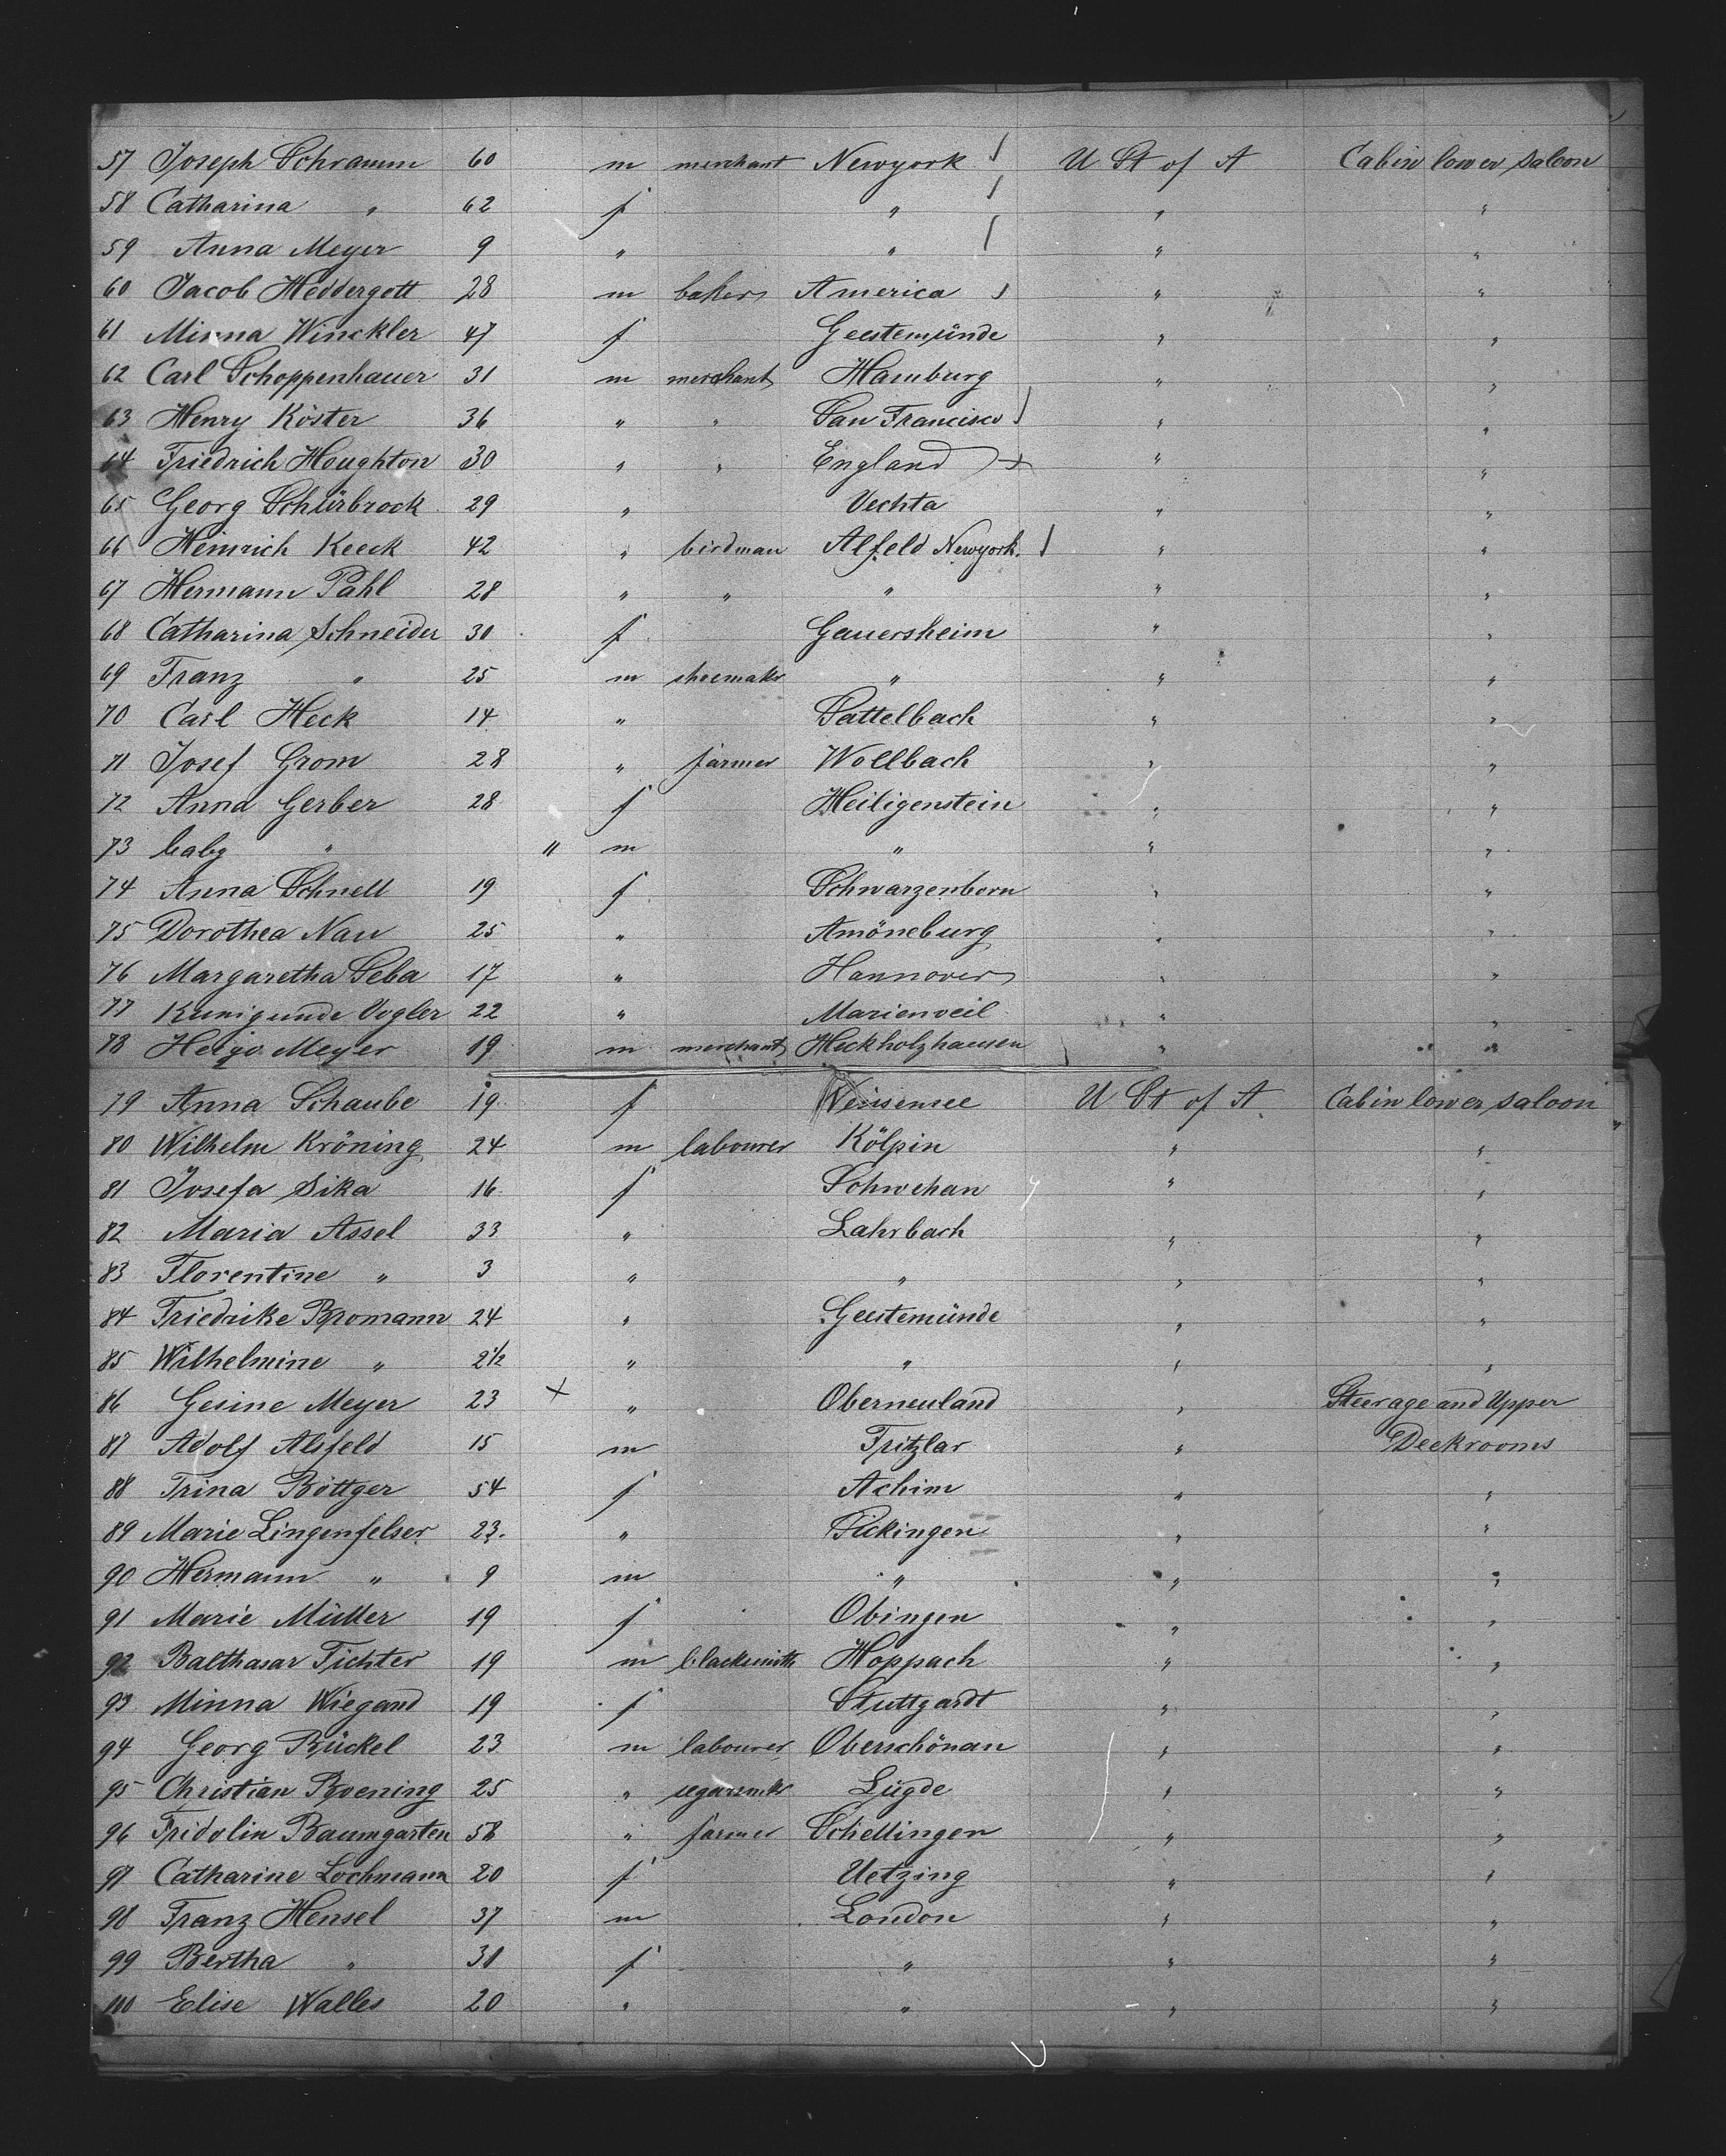 57 Joseph Schramm 60 m merchant Newyork U St of A Cabin lower saloon
58 Catharina " 62 f " " "
59 Anna Meyer 9 " " " "
60 Jacob Heddergott 28 m baker America " "
61 Minna Winckler 47 f Geestemünde " "
62 Carl Schoppenhauer 31 m merchant Hamburg " "
63 Henry Köster 36 " " San Francisco " "
64 Friedrich Houghton 30 " " England " "
65 Georg Schürbrock 29 " Vechta " "
66 Heinrich Keeck 42 " birdman Alfeld Newyork. " "
67 Hermann Pahl 28 " " " " "
68 Catharina Schneider 30 f Gauersheim " "
69 Franz " 25 m shoemakr " " "
70 Carl Heck 14 " Sattelbach " "
71 Josef Grom 28 " farmer Wollbach " "
72 Anna Gerber 28 f Heiligenstein " "
73 baby " 11 m " " "
74 Anna Schnell 19 f Schwarzenborn " "
75 Dorothea Nau 25 " Amöneburg " "
76 Margaretha Seba 17 " Hannover " "
77 Kunigunde Vogler 22 " Marienweil " "
78 Meyer 19 m merchant Heckholzhausen " "
79 Anna Schaube 19 f Weisensee U St of A Cabin lower saloon
80 Wilhelm Kröning 24 m labourer Kölpin " "
81 Josefa Sika 16 f Schwehan " "
82 Maria Assel 33 " Lahrbach " "
83 Florentine " 3 " " " "
84 Friedrike Bromann 24 " Geestemünde " "
85 Wilhelmine " 2½ " " " "
86 Gesine Meyer 23 + " Oberneuland " Steerage and Upper
87 Adolf Alsfeld 15 m Fritzlar " Deckrooms
88 Trina Böttger 54 f Achim " "
89 Marie Lingenfelser 23. " Fickingen " "
90 Hermann " 9 m " " "
91 Marie Müller 19 f Obingen " "
92 Balthasar Fichter 19 m blacksmith Hoppach " "
93 Minna Wiegand 19 f Stuttgardt " "
94 Georg Rückel 23 m labourer Oberschönau " "
95 Christian Boening 25 " segarmkr Lügde " "
96 Fridolin Baumgarten 58 " farmer Schellingen " "
97 Catharine Lochmann 20 f Uetzing " "
98 Franz Hensel 37 m London " "
99 Bertha " 31 f " " "
100 Elise Walles 20 " " " "